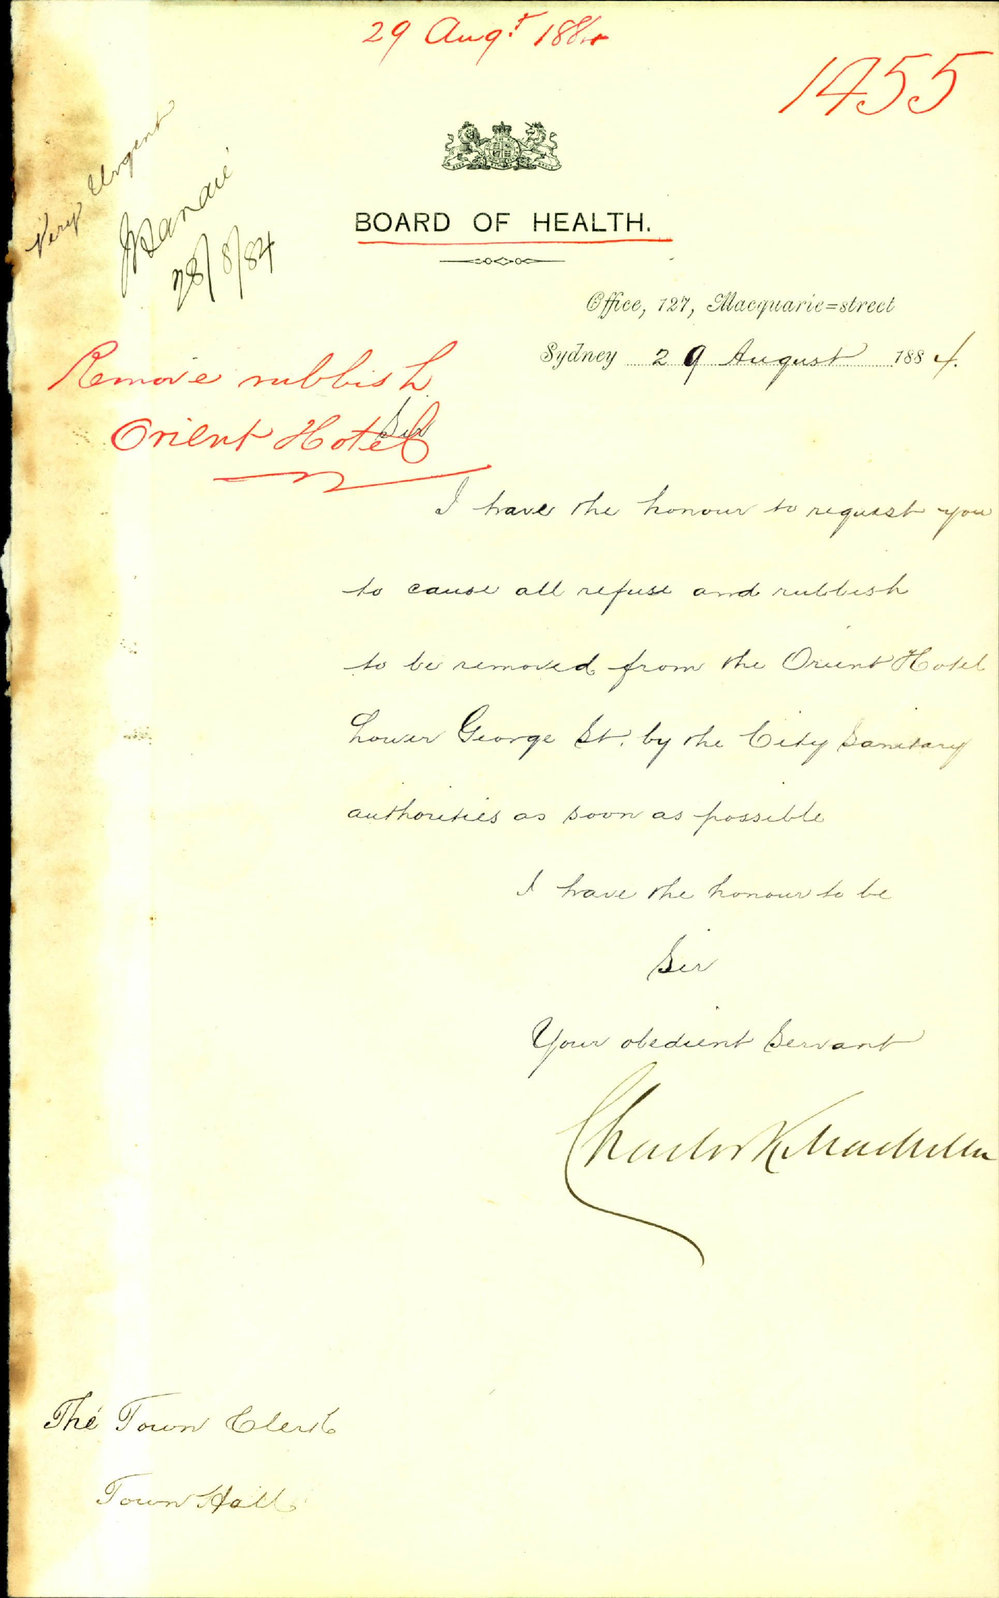 29 Augt 1884
1455
Very Urgent
28/8/84
BOARD OF HEALTH.
Office, 127, Macquarie=street
Sydney 29 August 1884.
Remove rubbish
Orient Hotel
Sir
I have the honour to request you
to cause all refuse and rubbish
to be removed from the Orient Hotel
Lower George St. by the City Sanitary
authorities as soon as possible
I have the honour to be
Sir
Your obedient Servant
Charles K Mackellar
The Town Clerk
Town Hall